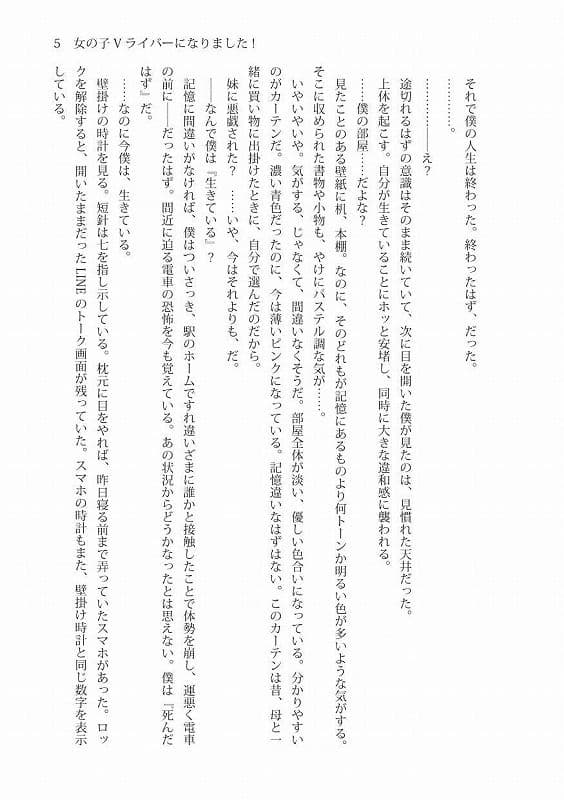 5 女の子Vライバーになりました！
それで僕の人生は終わった。終わったはず、だった。
……………。
……………――え？
途切れるはずの意識はそのまま続いていて、次に目を開いた僕が見たのは、見慣れた天井だった。
上体を起こす。自分が生きていることにホッと安堵し、同時に大きな違和感に襲われる。
……僕の部屋……だよな？
見たことのある壁紙に机、本棚。なのに、そのどれもが記憶にあるものより何トーンか明るい色が多いような気がする。
そこに収められた書物や小物も、やけにパステル調な気が……。
いやいやいや。気がする、じゃなくて、間違いなくそうだ。部屋全体が淡い、優しい色合いになっている。分かりやすい
のがカーテンだ。濃い青色だったのに、今は薄いピンクになっている。記憶違いなはずはない。このカーテンは昔、母と一
緒に買い物に出掛けたときに、自分で選んだのだから。
妹に悪戯された？　……いや、今はそれよりも、だ。
――なんで僕は『生きている』？
記憶に間違いがなければ、僕はついさっき、駅のホームですれ違いざまに誰かと接触したことで体勢を崩し、運悪く電車
の前に――だったはず。間近に迫る電車の恐怖を今も覚えている。あの状況からどうかなったとは思えない。僕は『死んだ
はず』だ。
……なのに今僕は、生きている。
壁掛けの時計を見る。短針は七を指し示している。枕元に目をやれば、昨日寝る前まで弄っていたスマホがあった。ロッ
クを解除すると、開いたままだったLINEのトーク画面が残っていた。スマホの時計もまた、壁掛け時計と同じ数字を表示
している。